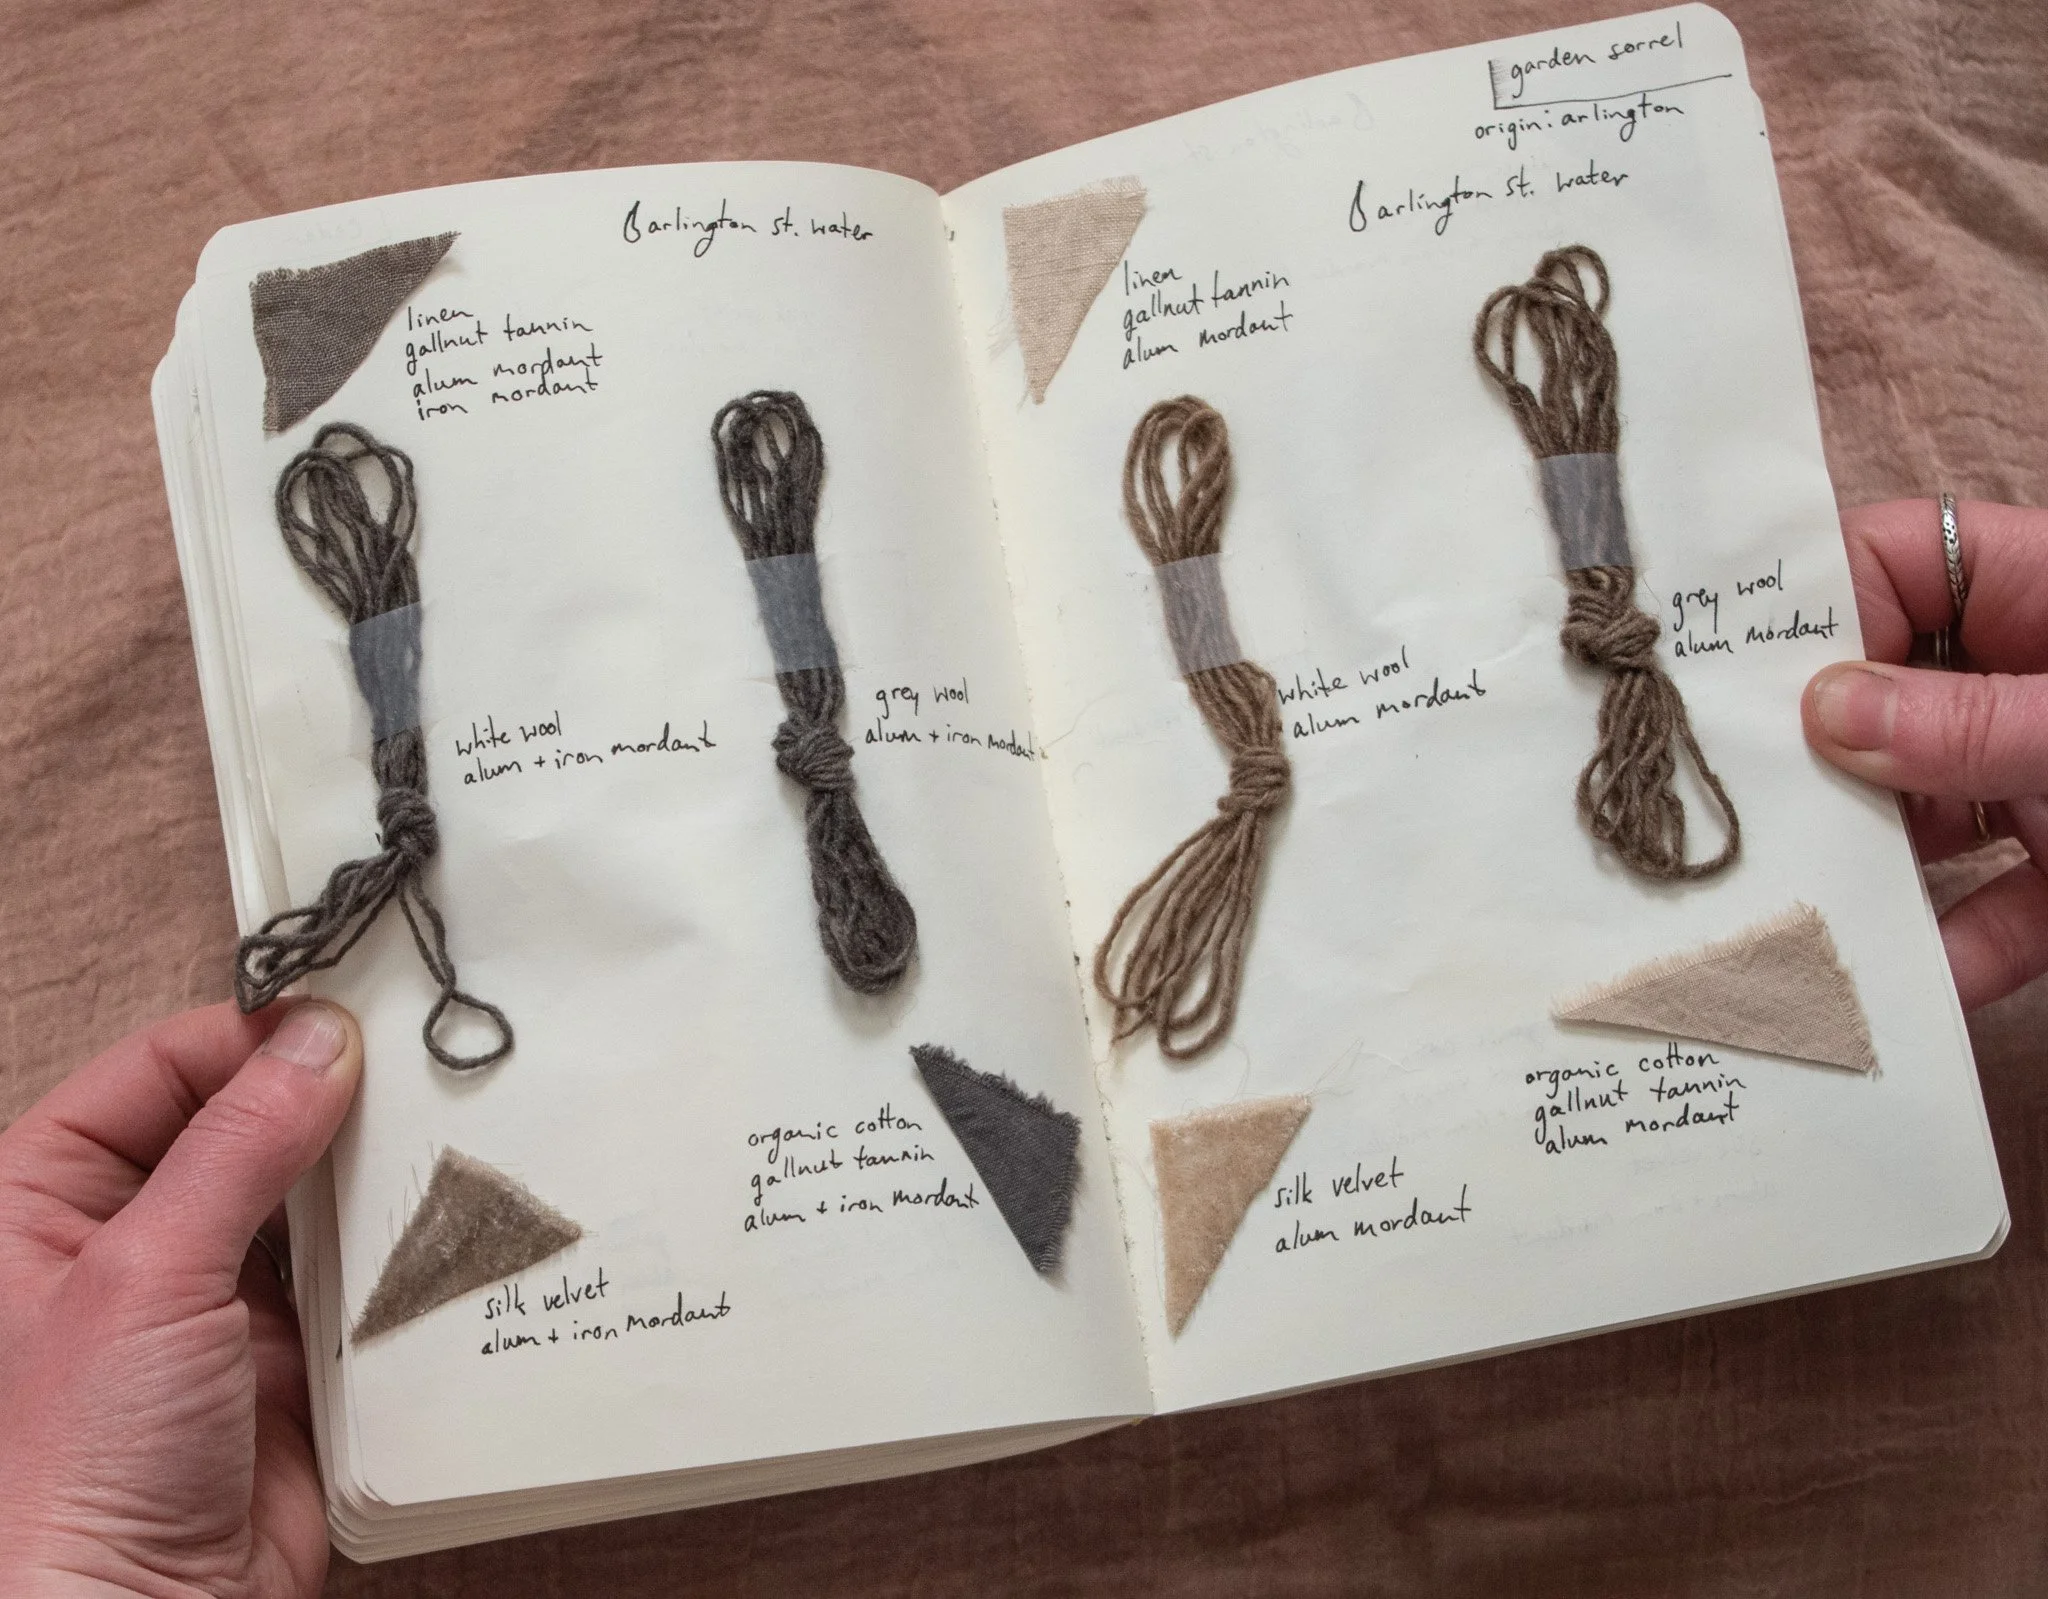 arlington st. water
linen
gallnut tannin
alum mordant
iron mordant
white wool
alum + iron mordant
grey wool
alum + iron mordant
organic cotton
gallnut tannin
alum + iron mordant
silk velvet
alum + iron mordant
garden sorrel
origin: arlington
arlington st. water
linen
gallnut tannin
alum mordant
grey wool
alum mordant
white wool
alum mordant
organic cotton
gallnut tannin
alum mordant
silk velvet
alum mordant